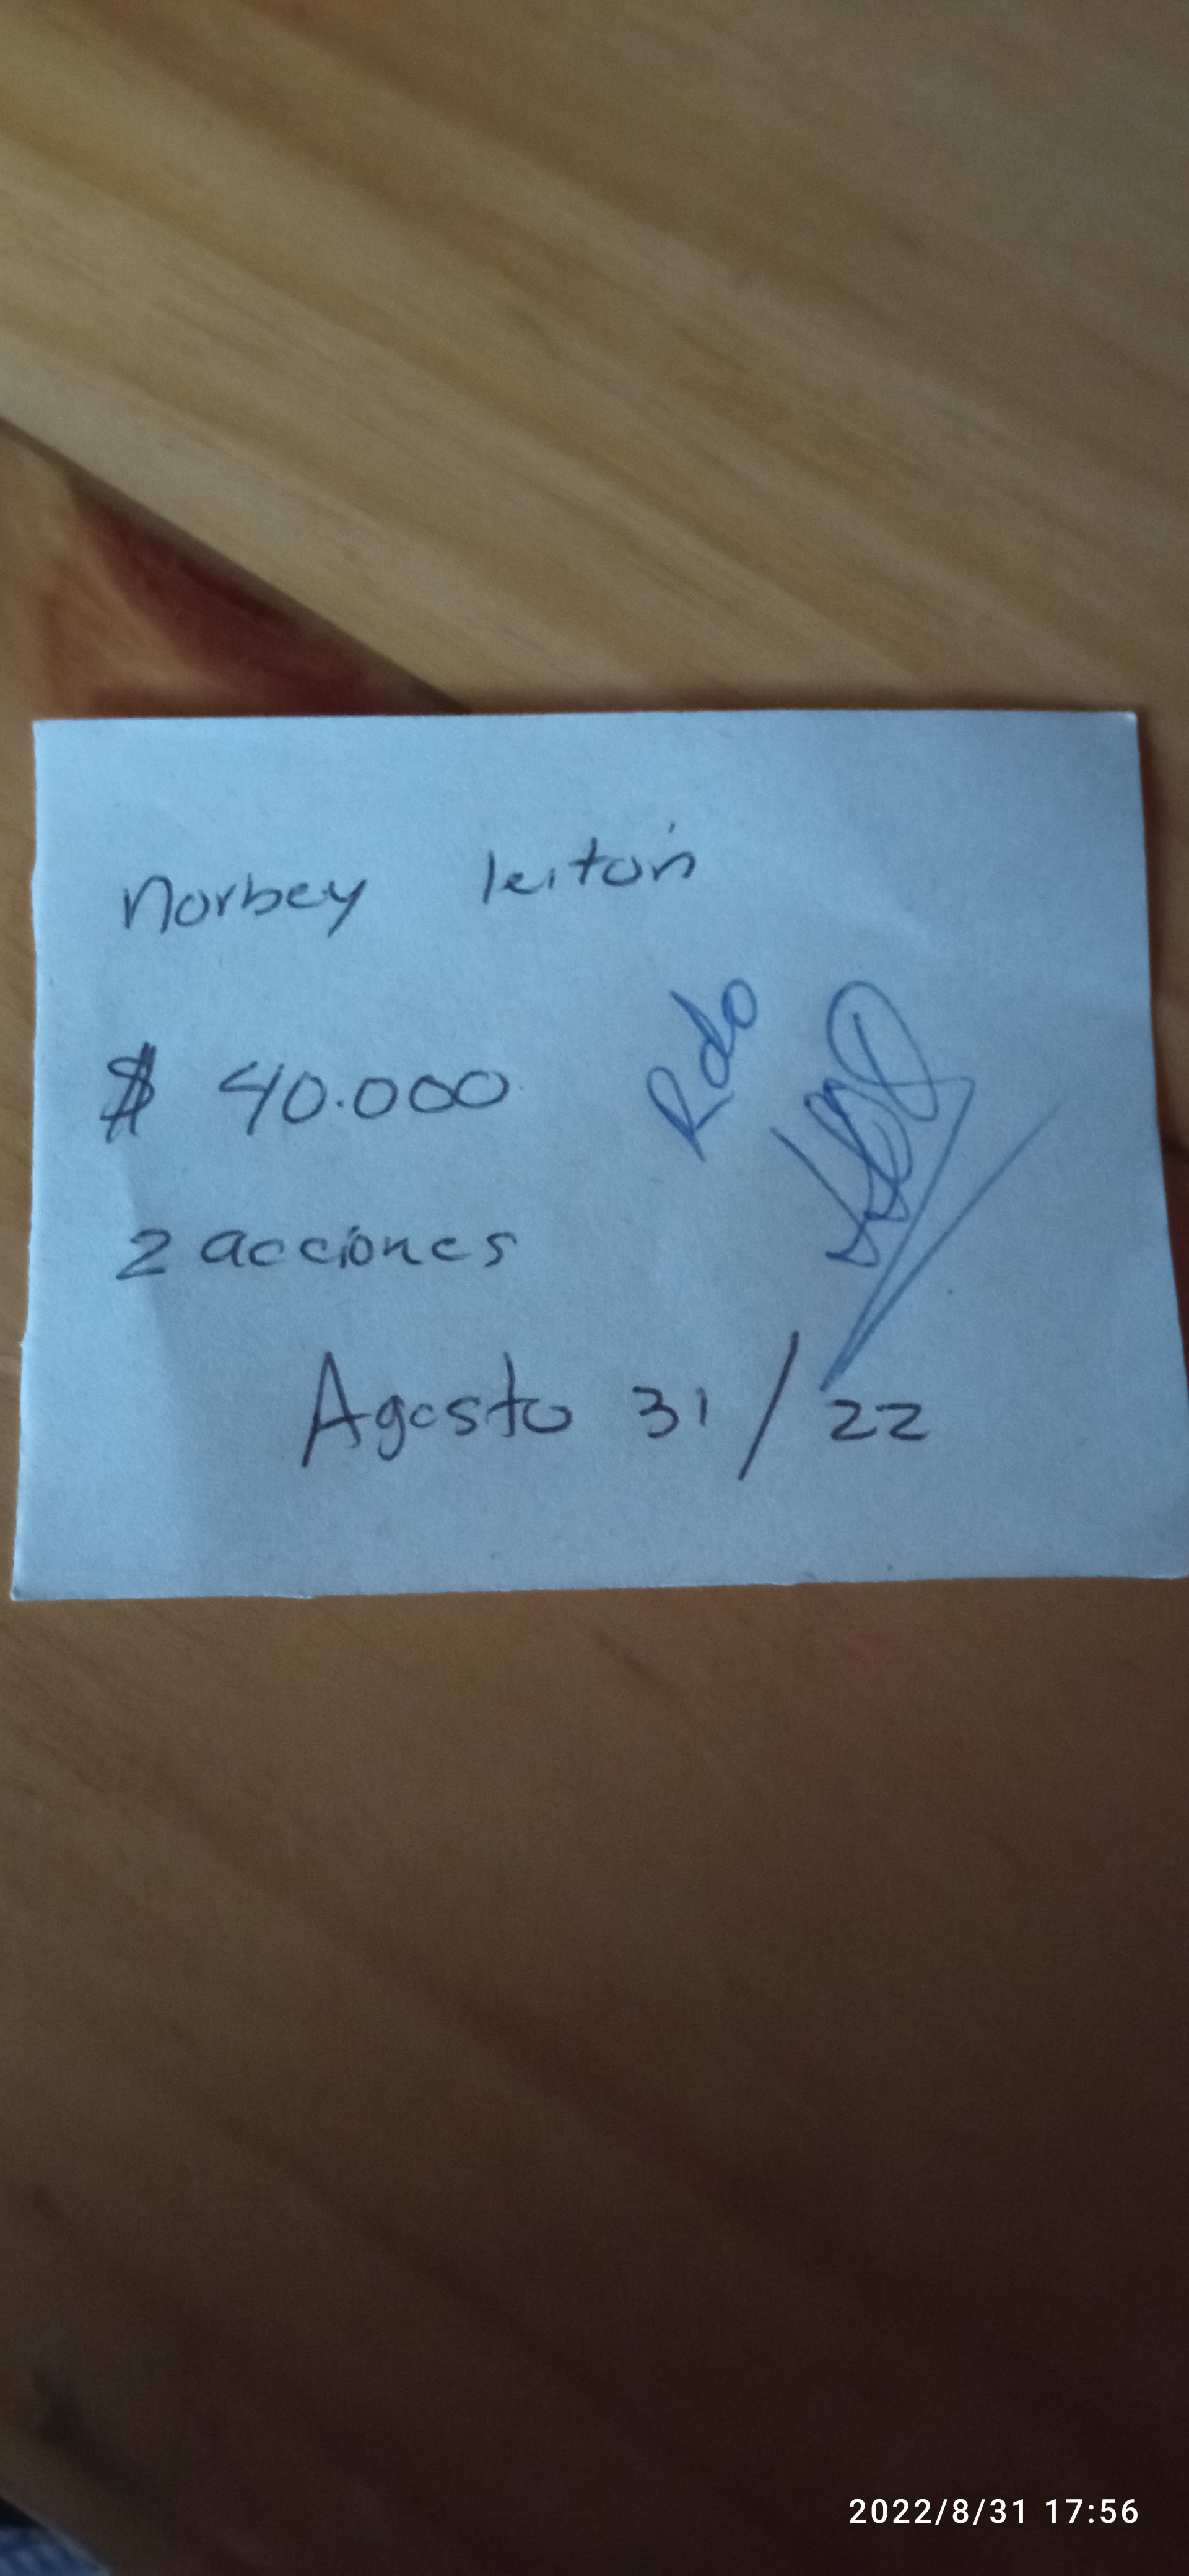 Norbey leitón
$ 40.000
Rdo
2 acciones
Agosto 31/22
2022/8/31 17:56